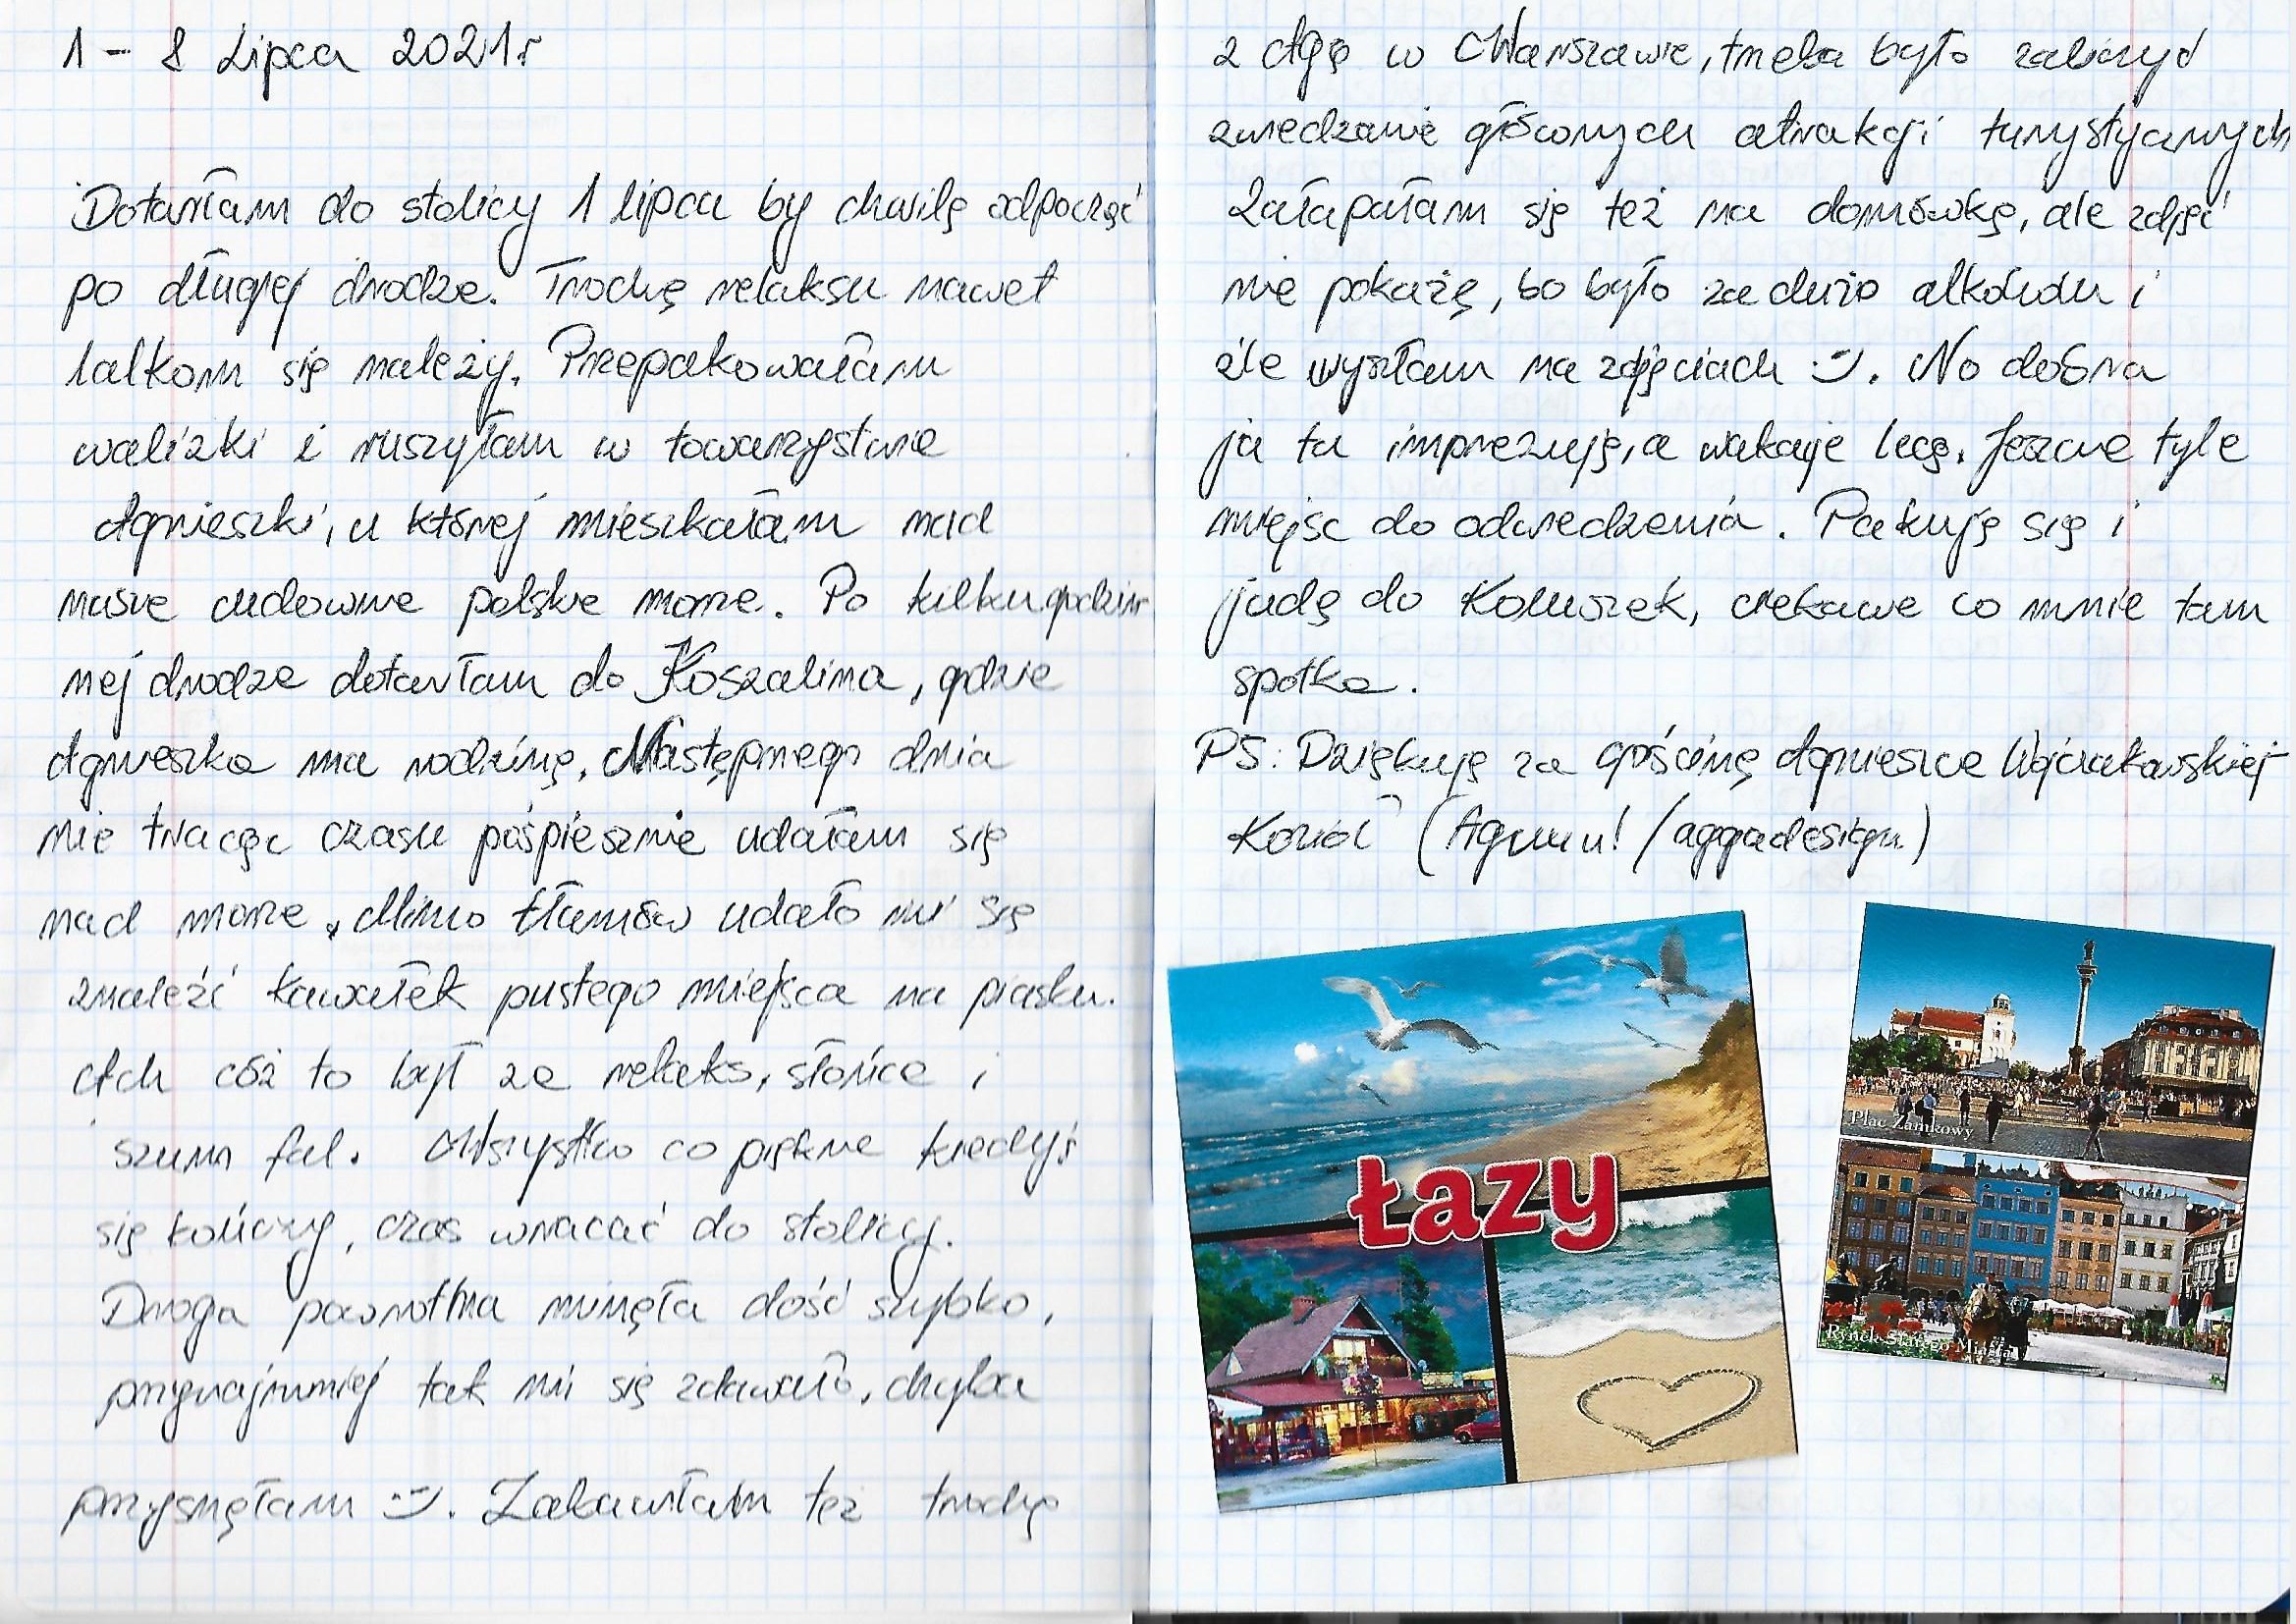 1 - 8 Lipca 2021r
Dotarłam do stolicy 1 lipca by chwilę odpocząć
po długiej drodze. Trochę relaksu nawet
lalkom się należy. Przepakowałam
walizki i ruszyłam w towarzystwie
Agnieszki, u której mieszkałam nad
nasze cudowne polskie morze. Po kilkugodzin
nej drodze dotarłam do Koszalina, gdzie
Agnieszka ma rodzinę. Następnego dnia
nie tracąc czasu pośpiesznie udałam się
nad morze. Mimo tłumów udało mi się
znaleźć kawałek pustego miejsca na piasku.
Ach cóż to był za relaks, słońce i
szum fal. Wszystko co piękne kiedyś
się kończy, czas wracać do stolicy.
Droga powrotna minęła dość szybko,
przynajmniej tak mi się zdawało, chyba
przysnęłam :-). Zabawiłam też trochę
z Agą w Warszawie, trzeba było zaliczyć
zwiedzanie głównych atrakcji turystycznych
Załapałam się też na domówkę, ale zdjęć
nie pokażę, bo było za dużo alkoholu i
źle wyszłam na zdjęciach :-). No dobra
ja tu imprezuję, a wakacje lecą. Jeszcze tyle
miejsc do odwiedzenia. Pakuję się i
jadę do Koluszek, ciekawe co mnie tam
spotka.
PS: Dziękuję za gościnę Agnieszce Wojciakowskiej-
Kozioł (Agumu! /aggadesign)
Łazy
Plac Zamkowy
Rynek Starego Miasta